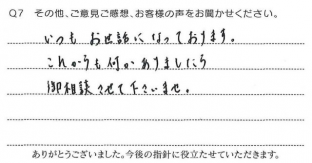 Q7 その他、ご意見ご感想、お客様の声をお聞かせください。
いつもお世話になっております。
これからも何かありましたら
御相談させて下さいませ。
ありがとうございました。今後の指針に役立たせていただきます。